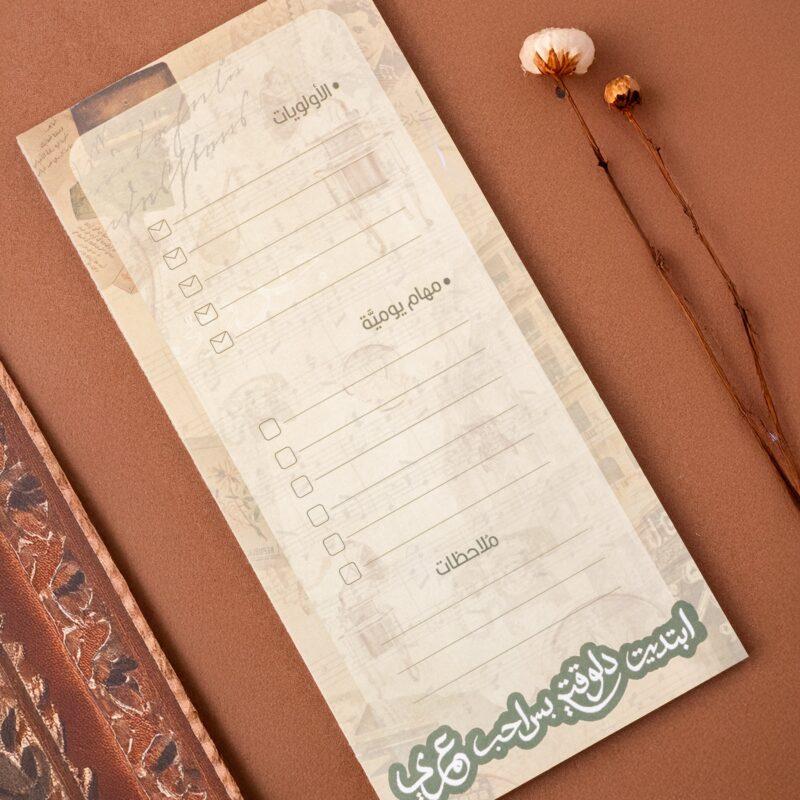 الأولويات
مهام يوميَّة
مُلاحظات
ابتديت دلوقتي بس احب عمري